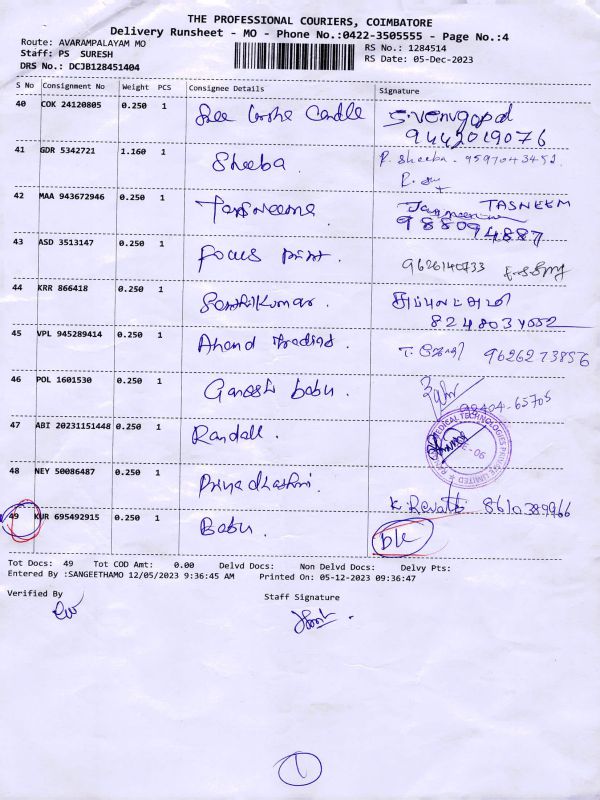 THE PROFESSIONAL COURIERS, COIMBATORE
Delivery Runsheet - MO - Phone No.:0422-3505555 - Page No.:4
Route: AVARAMPALAYAM MO
RS No.: 1284514
Staff: PS SURESH
RS Date: 05-Dec-2023
DRS No.: DCJB128451404
S No Consignment No Weight PCS Consignee Details Signature
40 COK 24120805 0.250 1 Candle S.Venugopal
9442019076
41 GDR 5342721 1.160 1 Sheeba. P. Sheeba - 9597043452.
42 MAA 943672946 0.250 1 TASNEEM
988094887
43 ASD 3513147 0.250 1 Focus Print. 9626140733
44 KRR 866418 0.250 1 Senthilkumar.
45 VPL 945289414 0.250 1 Anand Trading 9626273856
46 POL 1601530 0.250 1 Ganesh babu. 98404-65705
47 ABI 20231151448 0.250 1 Randall. MEDICAL TECHNOLOGIES
48 NEY 50086487 0.250 1 Priyadharshni. K. Revathi 8610389966
49 KUR 695492915 0.250 1 Babu. D/C
Tot Docs: 49 Tot COD Amt: 0.00 Delvd Docs: Non Delvd Docs: Delvy Pts:
Entered By :SANGEETHAMO 12/05/2023 9:36:45 AM Printed On: 05-12-2023 09:36:47
Verified By Staff Signature
1